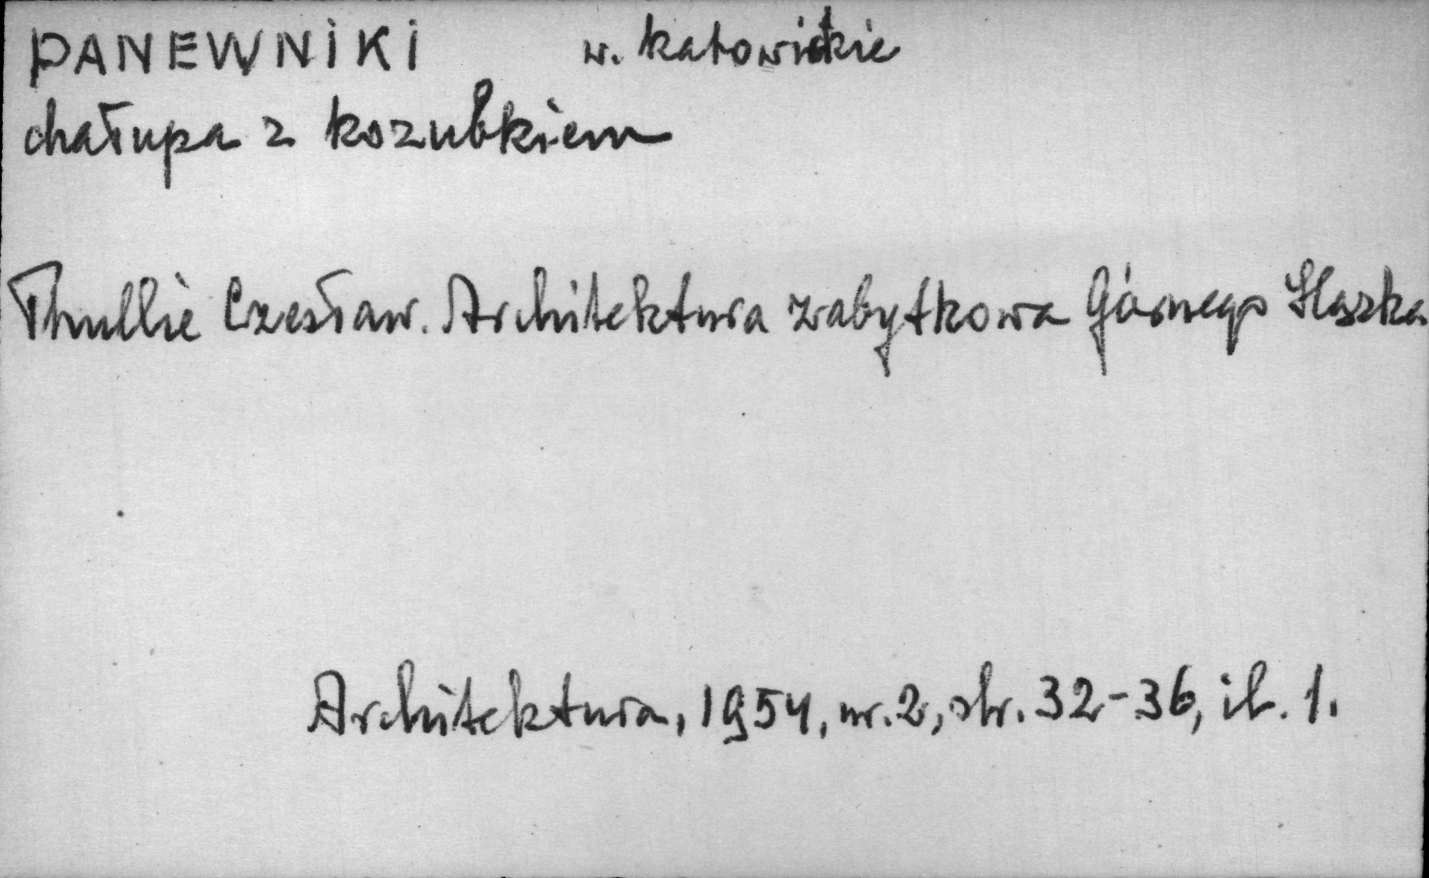 PANEWNIKI w. katowickie
chałupa z kozubkiem
Thullie Czesław. Architektura zabytkowa Górnego Śląska
Architektura, 1954, nr. 2, str. 32-36, il. 1.